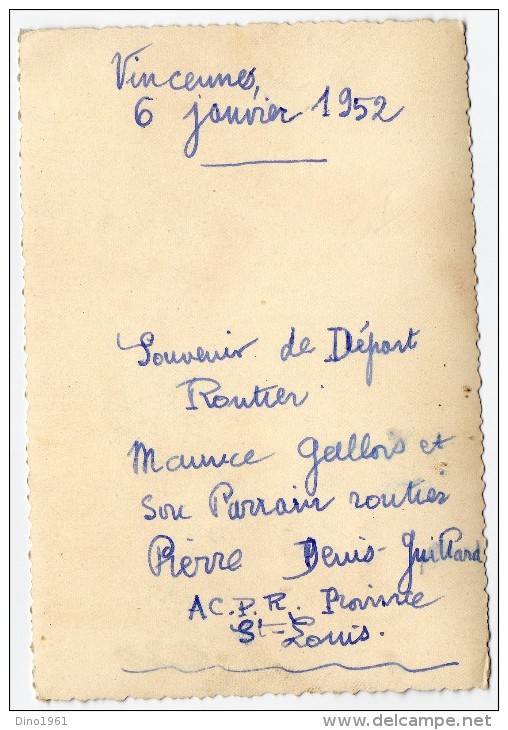 Vincennes,
6 janvier 1952
Souvenir de Départ
Routier.
Maurice Gallois et
son Parrain routier
Pierre Denis-Guillard
A.C.P.R. Province
St-Louis.
Dino1961
delcampe.net